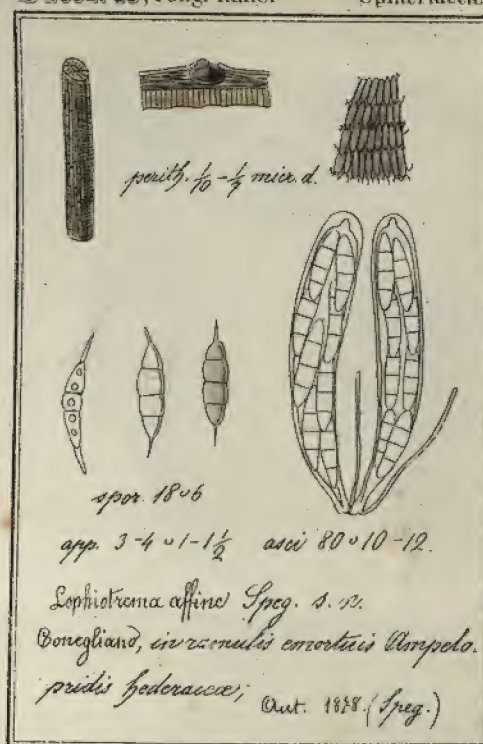 perith. 1/10 - 1/7 micr. d.
spor. 18 υ 6
app. 3-4 υ 1-1 1/2 asci 80 υ 10-12.
Lophiotrema affine Speg. s. n.
Conegliano, in ramulis emortuis Ampelo-
psidis hederaceæ;
Aut. 1878. (Speg.)